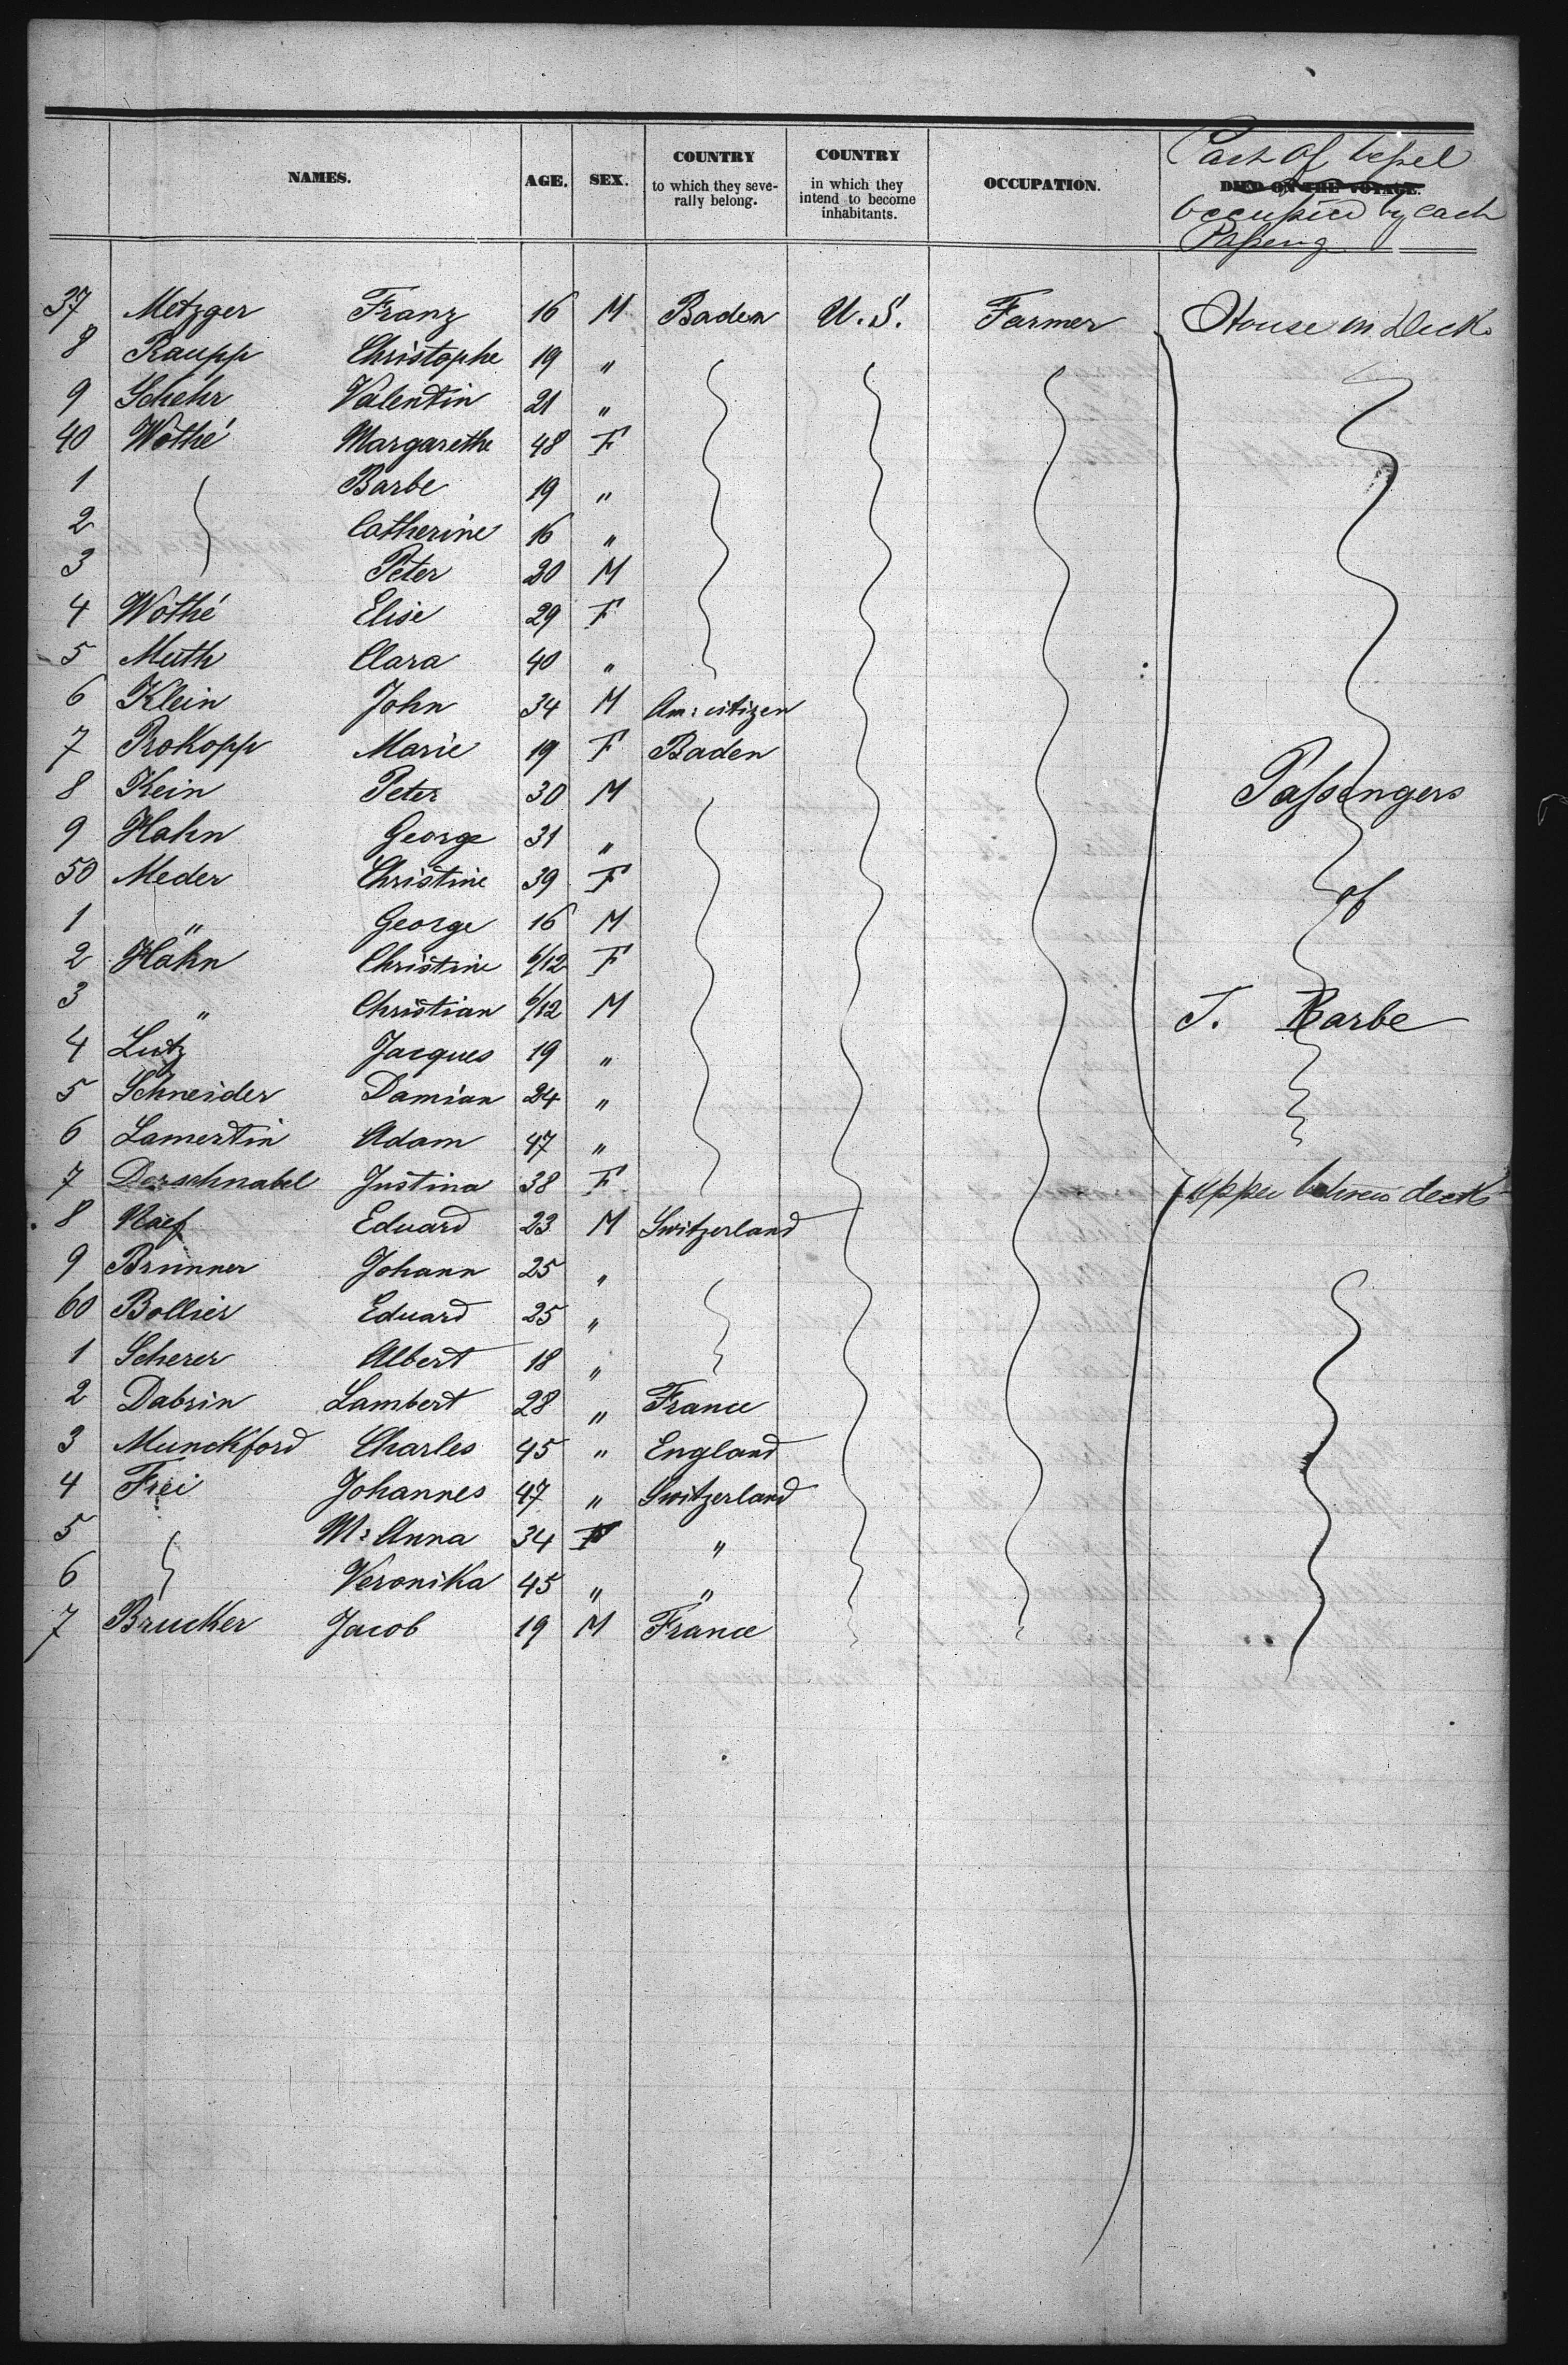 NAMES. AGE. SEX. COUNTRY to which they seve- rally belong. COUNTRY in which they intend to become inhabitants. OCCUPATION. DIED ON THE VOYAGE.
Part of vessel
occupied by each
Passeng
37 Metzger Franz 16 M Baden U.S. Farmer House on Deck
8 Raupp Christophe 19 "
9 Schehr Valentin 21 "
40 Wothé Margarethe 48 F
1 Barbe 19 "
2 Catherine 16 "
3 Peter 20 M
4 Wothé Elise 29 F
5 Muth Clara 40 "
6 Klein John 34 M Am: citizen
7 Prokopp Marie 19 F Baden
8 Kein Peter 30 M Passengers
9 Hahn George 31 "
50 Meder Christine 39 F of
1 " George 16 M
2 Hahn Christine 6/12 F
3 " Christian 6/12 M J. Barbe
4 Lutz Jacques 19 "
5 Schneider Damian 24 "
6 Lamertin Adam 47 "
7 Derschnabel Justina 38 F upper between decks
8 Naef Eduard 23 M Switzerland
9 Brunner Johann 25 "
60 Bollier Eduard 25 "
1 Scherer Albert 18 "
2 Dabrin Lambert 28 " France
3 Munckford Charles 45 " England
4 Frei Johannes 47 " Switzerland
5 M: Anna 34 F "
6 Veronika 45 " "
7 Brucker Jacob 19 M France